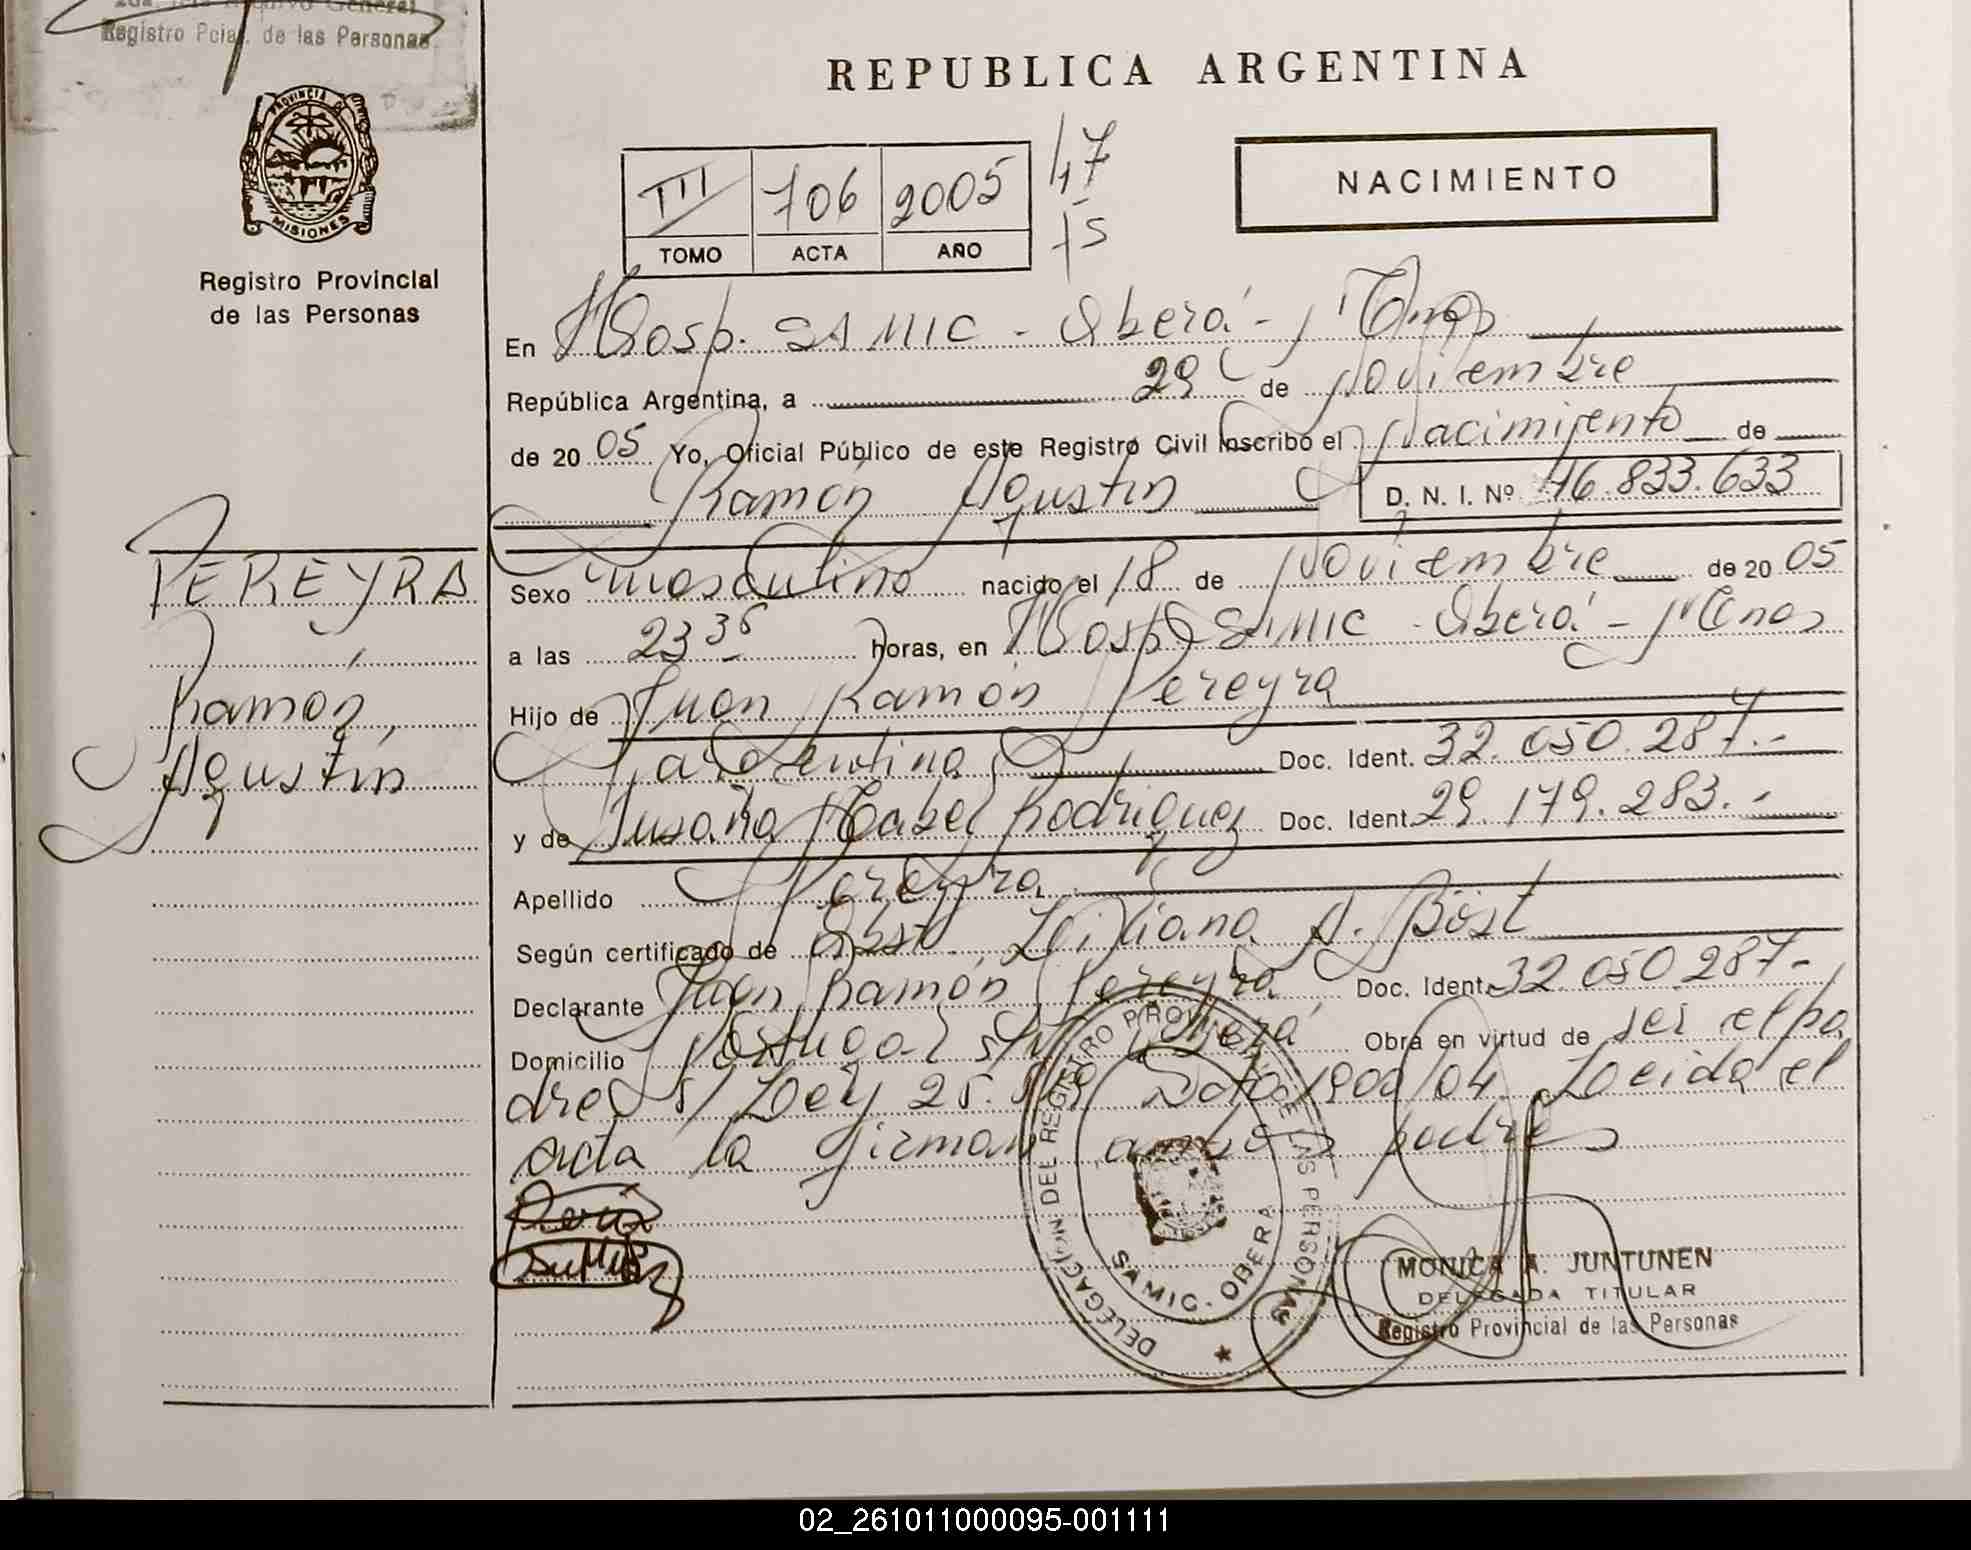 2da. Jefe Archivo General
Registro Pcial. de las Personas
PROVINCIA DE
MISIONES
Registro Provincial
de las Personas
REPUBLICA ARGENTINA
III 706 2005
TOMO ACTA AÑO
47
75
NACIMIENTO
En Hosp. SAMIC - Oberá - Mnes
República Argentina, a 29 de Noviembre
de 20 05 Yo, Oficial Público de este Registro Civil Inscribo el Nacimiento de
Ramón Agustín D. N. I. Nº 46.833.633
PEREYRA
Ramón
Agustín
Sexo masculino nacido el 18 de Noviembre de 20 05
a las 23 35 horas, en Hosp SAMIC - Oberá - Mnes
Hijo de Juan Ramón Pereyra
argentina Doc. Ident. 32.050.287.-
y de Susana Isabel Rodriguez Doc. Ident. 29.179.283.-
Apellido Pereyra
Según certificado de Obst. Liliana A. Böst
Declarante Juan Ramón Pereyra Doc. Ident. 32.050.287-
Domicilio Portugal s/n Oberá Obra en virtud de ser el pa
dre s/ Ley 25. Dcto 1900/04. Leida el
acta la firman ambos padres
DELEGACION DEL REGISTRO PROVINCIAL DE LAS PERSONAS
SAMIC - OBERA
MONICA A. JUNTUNEN
DELEGADA TITULAR
Registro Provincial de las Personas
02_261011000095-001111